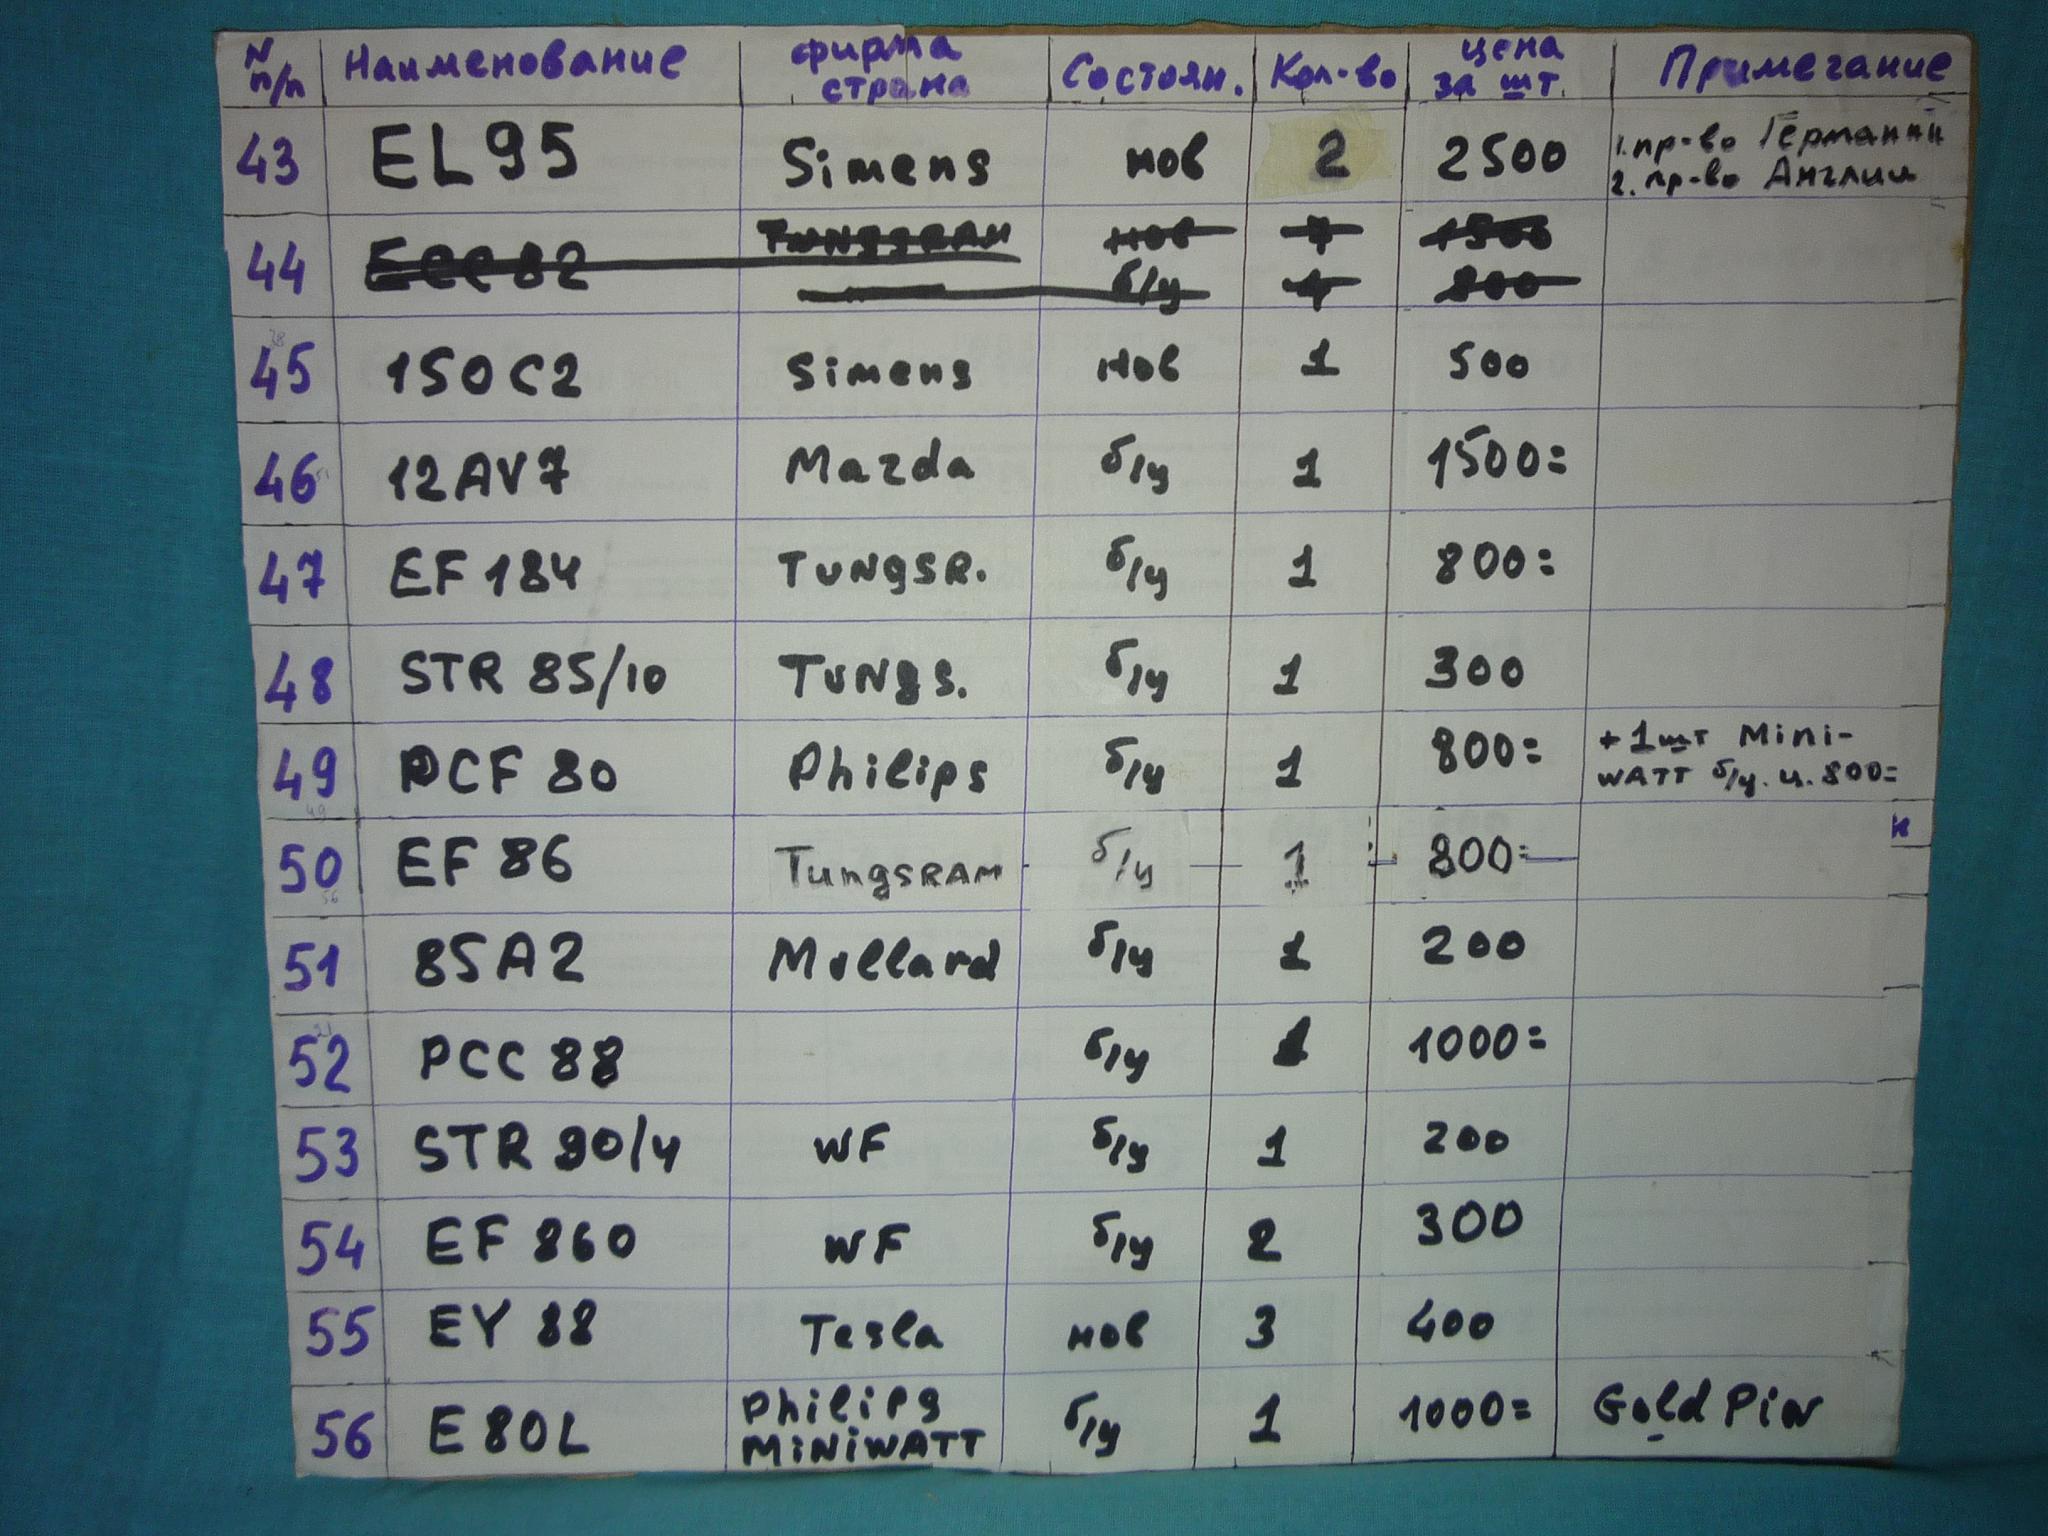 N п/п Наименование фирма страна Состоян. Кол-во цена за шт. Примечание
43 EL95 Simens нов 2 2500 1. пр-во Германии
2. пр-во Англии
44 ECC82 TUNGSRAM нов 7 1500
б/у 800
45 150C2 Simens нов 1 500
46 12AV7 Mazda б/у 1 1500=
47 EF 184 TUNGSR. б/у 1 800=
48 STR 85/10 TUNGS. б/у 1 300
49 PCF 80 Philips б/у 1 800= +1шт Mini-
WATT б/у. ц. 800=
50 EF 86 TungsRAM б/у 1 800=
51 85A2 Mullard б/у 1 200
52 PCC 88 б/у 1 1000=
53 STR 90/4 WF б/у 1 200
54 EF 860 WF б/у 2 300
55 EY 88 Tesla нов 3 400
56 E 80L Philips MINIWATT б/у 1 1000= Gold Pin